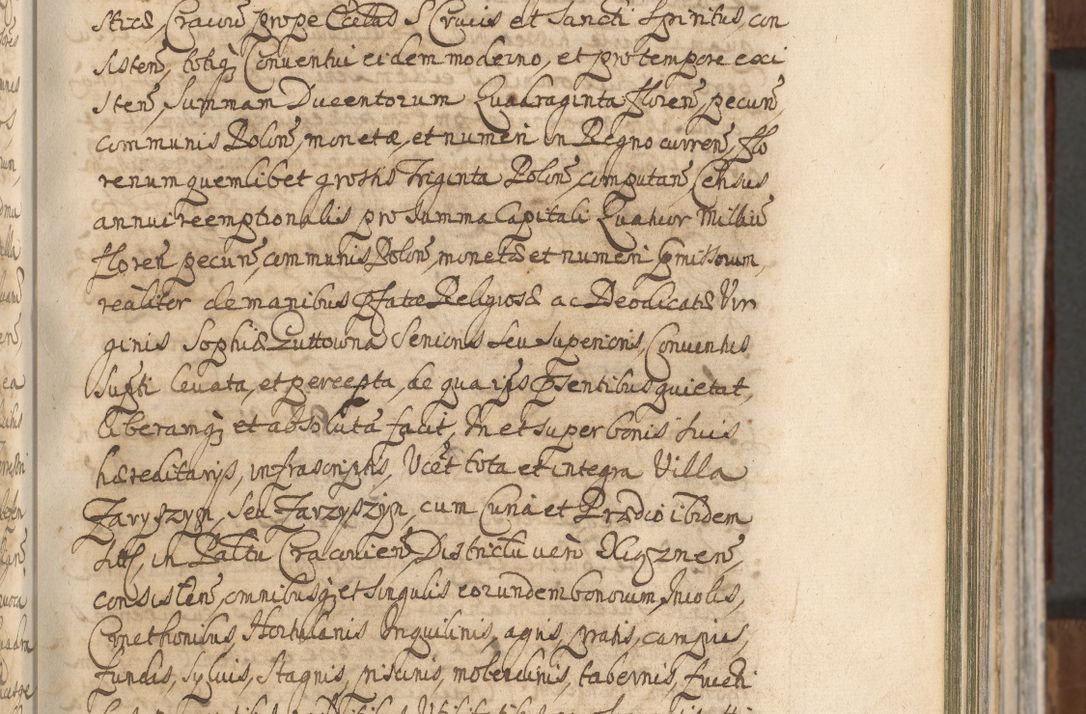 stricæ, Cracoviæ prope Ecclas S Crucis et Sancti Spiritus, con
sisten̄, totiq; Conventui eidem moderno, et pro tempore exi
sten̄, Summam Ducentorum Quadraginta floren̄, pecun̄,
communis Polon̄, monetæ, et numeri in Regno curren̄, flo
renum quemlibet grossis Triginta Polon̄, computan̄, Census
annui reemptionalis pro summa Capitali Quatuor Milliū
floren̄ pecun̄, communis Polon̄, monetæ et numeri pmissorum,
realiter de manibus Pfatæ Religiosæ ac Deodicatæ Vir
ginis Sophiæ Senioris seu Superioris, Conventus
Supti levata, et percepta, de qua ijs Psentibus quietat,
liberamq; et absolutā facit, In et super bonis suis
hæreditarijs, infrascriptis, Vcet tota et integra Villa
Zaryszyn, seu Zarzyszyn, cum Curia et Prædio ibidem
in Palttu Cracovien̄, Districtu vero Xigznen̄,
consisten̄, omnibusq; et singulis eorundem bonorum, Incolis,
Cmethonibus, Hortulanis Inquilinis, agris, pratis, campis,
fundis, Sylvis, Stagnis, piscinis, molendinis, tabernis, fructi